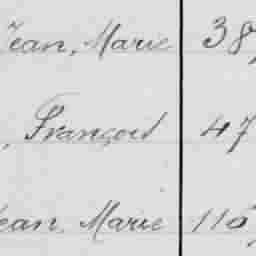 Jean, Marie 38,
, François 47
Jean, Marie 116,